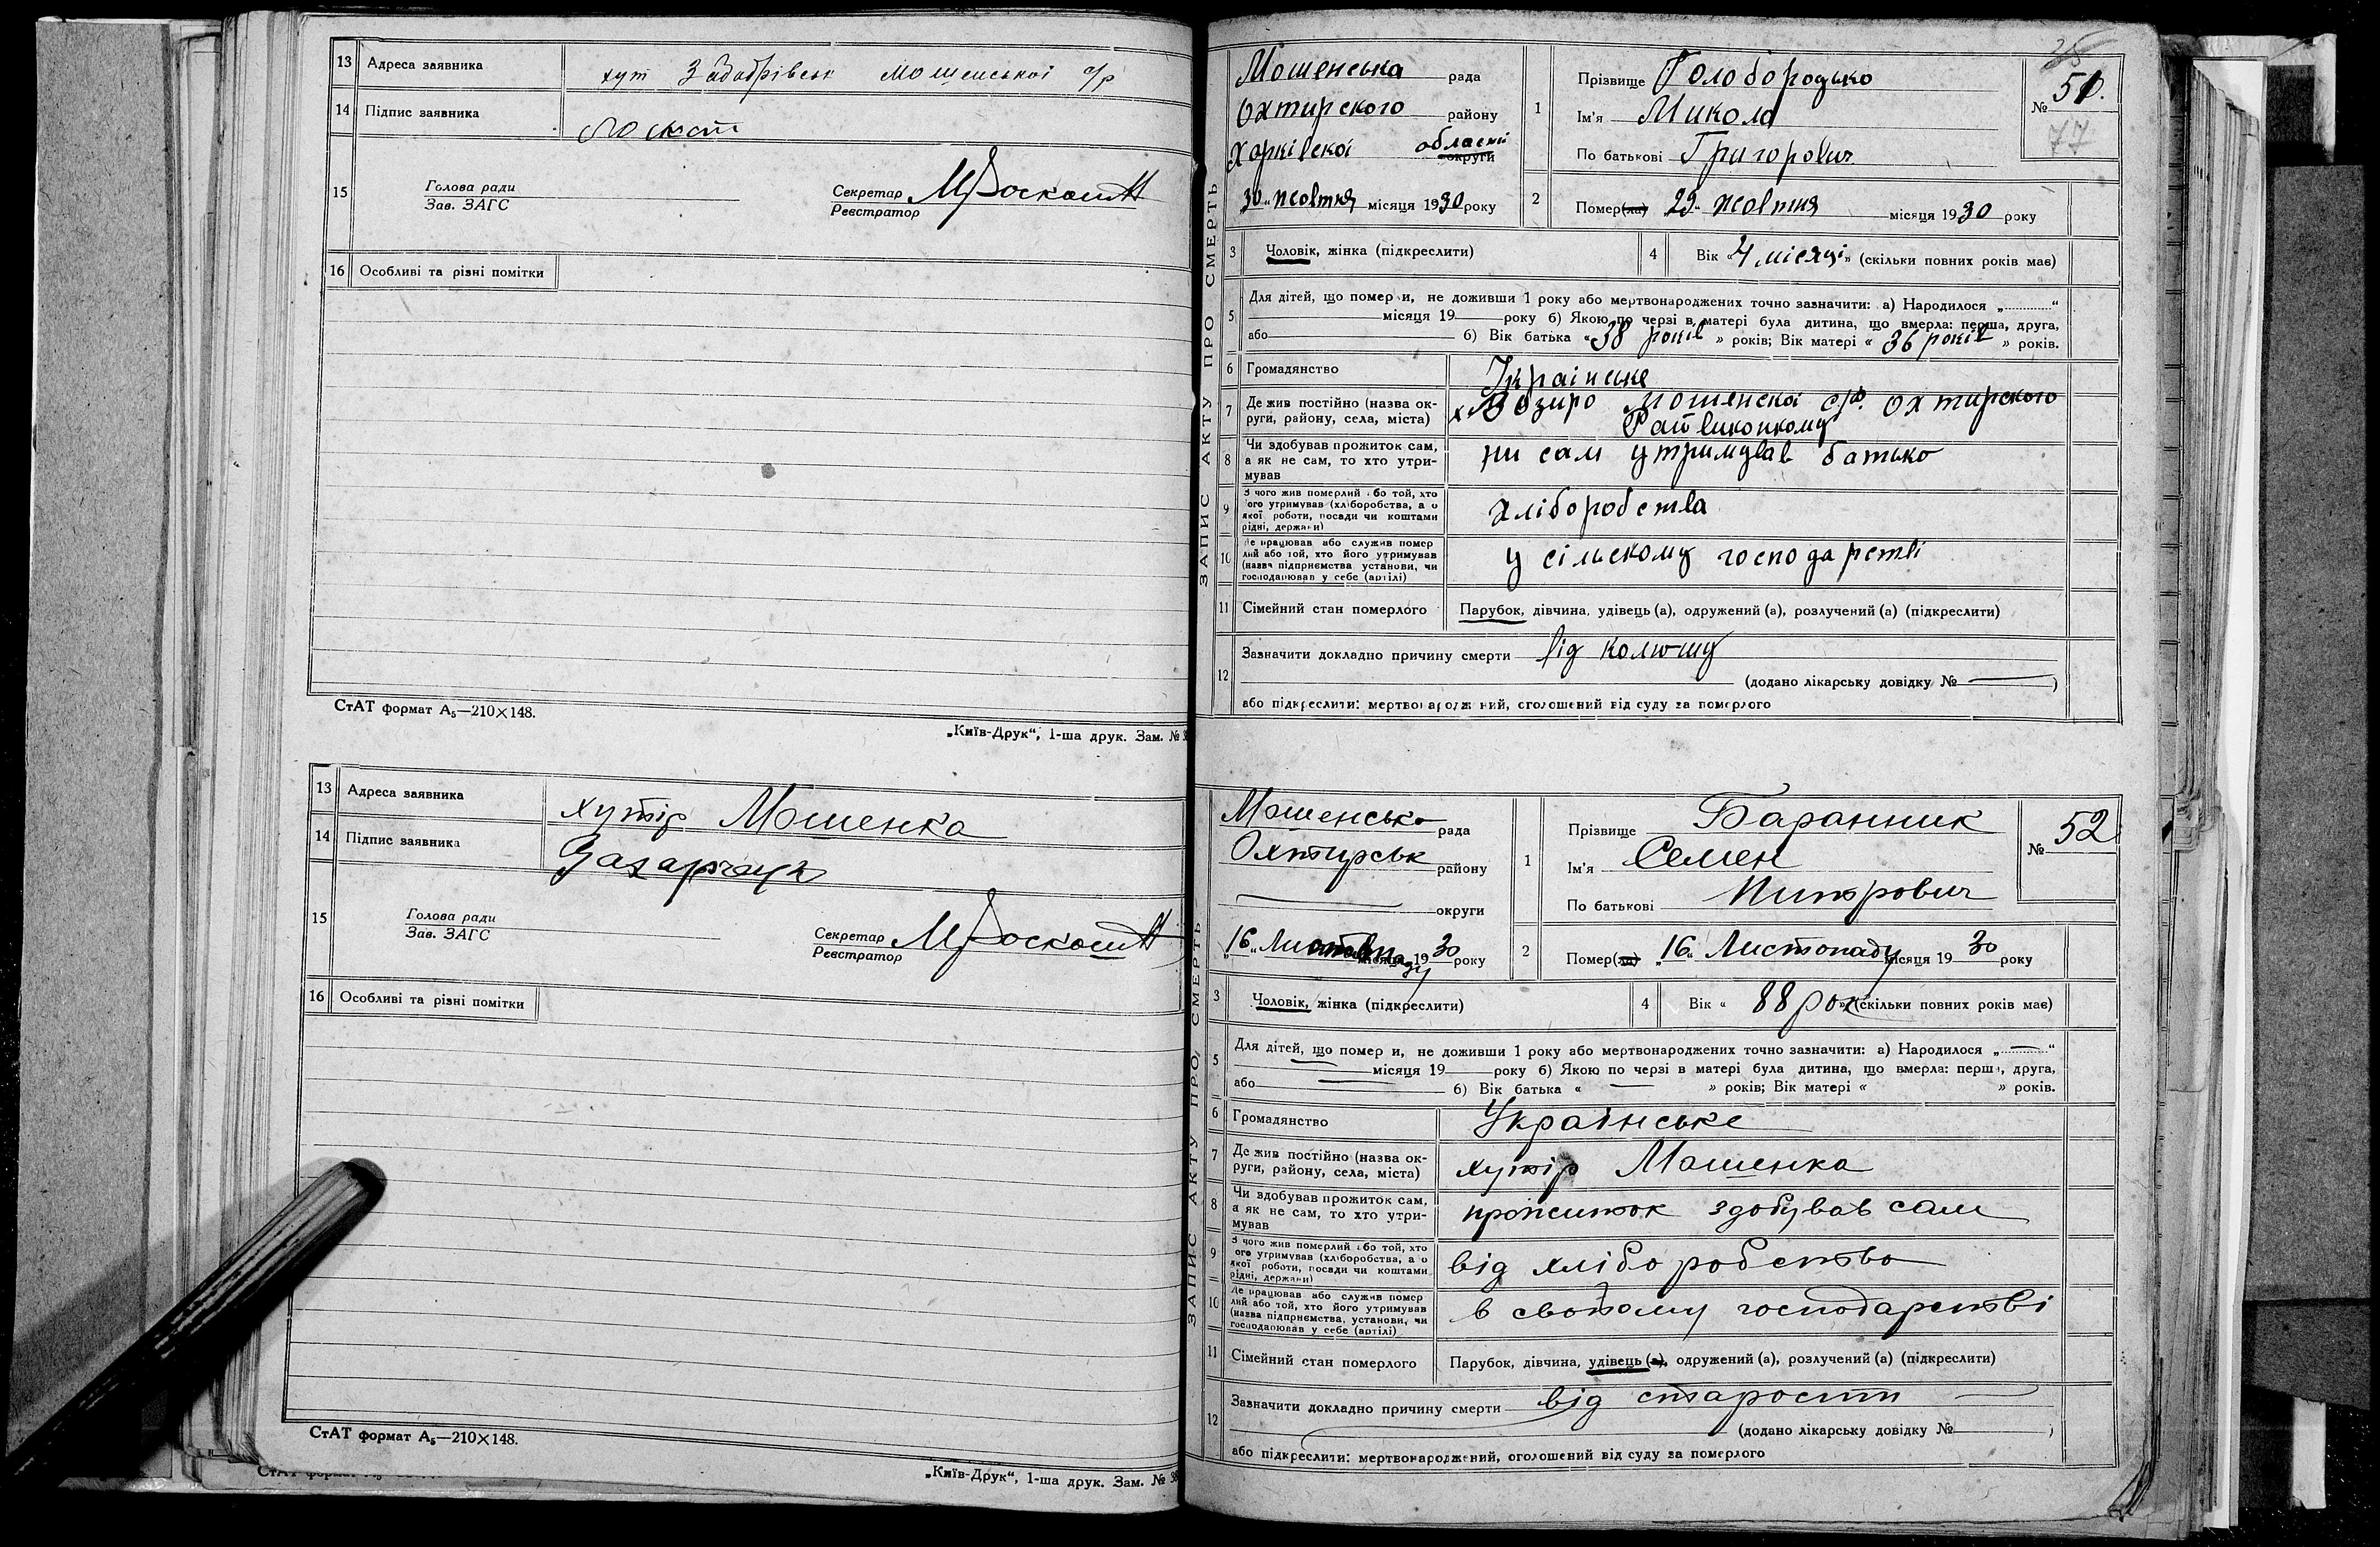 13 Адреса заявника хут Мошенської с/р
14 Підпис заявника
15 Голова ради
Зав. ЗАГС
Секретар
Реєстратор
16 Особливі та різні помітки
СтАТ формат А₅—210×148.
„Київ-Друк“, 1-ша друк. Зам. № 3
13 Адреса заявника хутір Мошенка
14 Підпис заявника
15 Голова ради
Зав. ЗАГС
Секретар
Реєстратор
16 Особливі та різні помітки
СтАТ формат А₅—210×148.
„Київ-Друк“, 1-ша друк. Зам. № 38
ЗАПИС АКТУ ПРО СМЕРТЬ
Мошенська рада
Охтирского району
Харківскоі області округи
30 жовтня місяця 1930 року
1 Прізвище Голобородько
Ім'я Микола
По батькові Григорович
№ 51.
77
2 Помер(ла) 29 жовтня місяця 1930 року
3 Чоловік, жінка (підкреслити)
4 Вік « 4 місяці » (скільки повних років має)
5 Для дітей, що помер и, не доживши 1 року або мертвонароджених точно зазначити: а) Народилося „ “
місяця 19 року б) Якою по черзі в матері була дитина, що вмерла: перша, друга,
або б) Вік батька « 38 років » років; Вік матері « 36 років » років.
6 Громадянство Украінське
7 Де жив постійно (назва ок-
руги, району, села, міста) х Возиро мошенскоі с/р. Охтирского
Райвиконкому
8 Чи здобував прожиток сам,
а як не сам, то хто утри-
мував ни сам утримував батько
9 З чого жив померлий або той, хто
його утримував (хліборобства, а о
якої роботи, посади чи коштами
рідні, держави) хліборобства
10 Де працював або служив помер
лий або той, хто його утримував
(назва підприємства установи, чи
господарював у себе (артілі) у сільскому господарстві
11 Сімейний стан померлого Парубок, дівчина, удівець (а), одружений (а), розлучений (а) (підкреслити)
12 Зазначити докладно причину смерти від колюшу
(додано лікарську довідку № )
або підкреслити: мертвонароджений, оголошений від суду за померлого
ЗАПИС АКТУ ПРО СМЕРТЬ
Мошенська рада
Охтирськ району
округи
„16“ Листопаду місяця 1930 року
1 Прізвище Баранник
Ім'я Семен
По батькові Питрович
№ 52
2 Помер(ла) „16“ Листопаду місяця 1930 року
3 Чоловік, жінка (підкреслити)
4 Вік « 88 рок » (скільки повних років має)
5 Для дітей, що помер и, не доживши 1 року або мертвонароджених точно зазначити: а) Народилося „ — “
місяця 19 року б) Якою по черзі в матері була дитина, що вмерла: перша, друга,
або б) Вік батька « — » років; Вік матері « » років.
6 Громадянство Українське
7 Де жив постійно (назва ок-
руги, району, села, міста) хутір Мошенка
8 Чи здобував прожиток сам,
а як не сам, то хто утри-
мував прожиток здобував сам
9 З чого жив померлий або той, хто
його утримував (хліборобства, а о
якої роботи, посади чи коштами
рідні, держави) від хліборобства
10 Де працював або служив помер
лий або той, хто його утримував
(назва підприємства, установи, чи
господарював у себе (артілі) в свойому господарстві
11 Сімейний стан померлого Парубок, дівчина, удівець (а), одружений (а), розлучений (а) (підкреслити)
12 Зазначити докладно причину смерти від старости
(додано лікарську довідку № )
або підкреслити: мертвонароджений, оголошений від суду за померлого